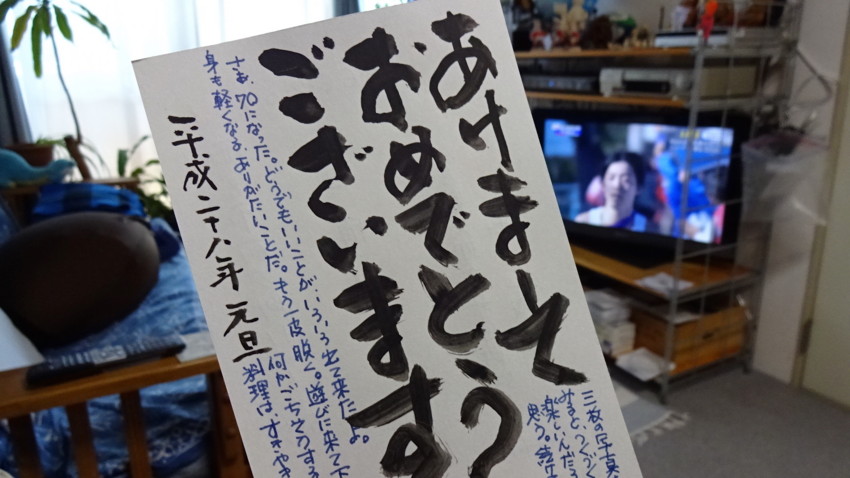 あけまして
おめでとう
ございます
三枚の写真
みるとつくづく
楽しいんだろ
思う。
さあ、70になった。どうでもいいことがいろいろ出て来たよ。
身も軽くなる。ありがたいことだ。もう一皮脱ぐ。遊びに来て下
何かごちそうする
料理はすきやき
平成二十八年 元旦